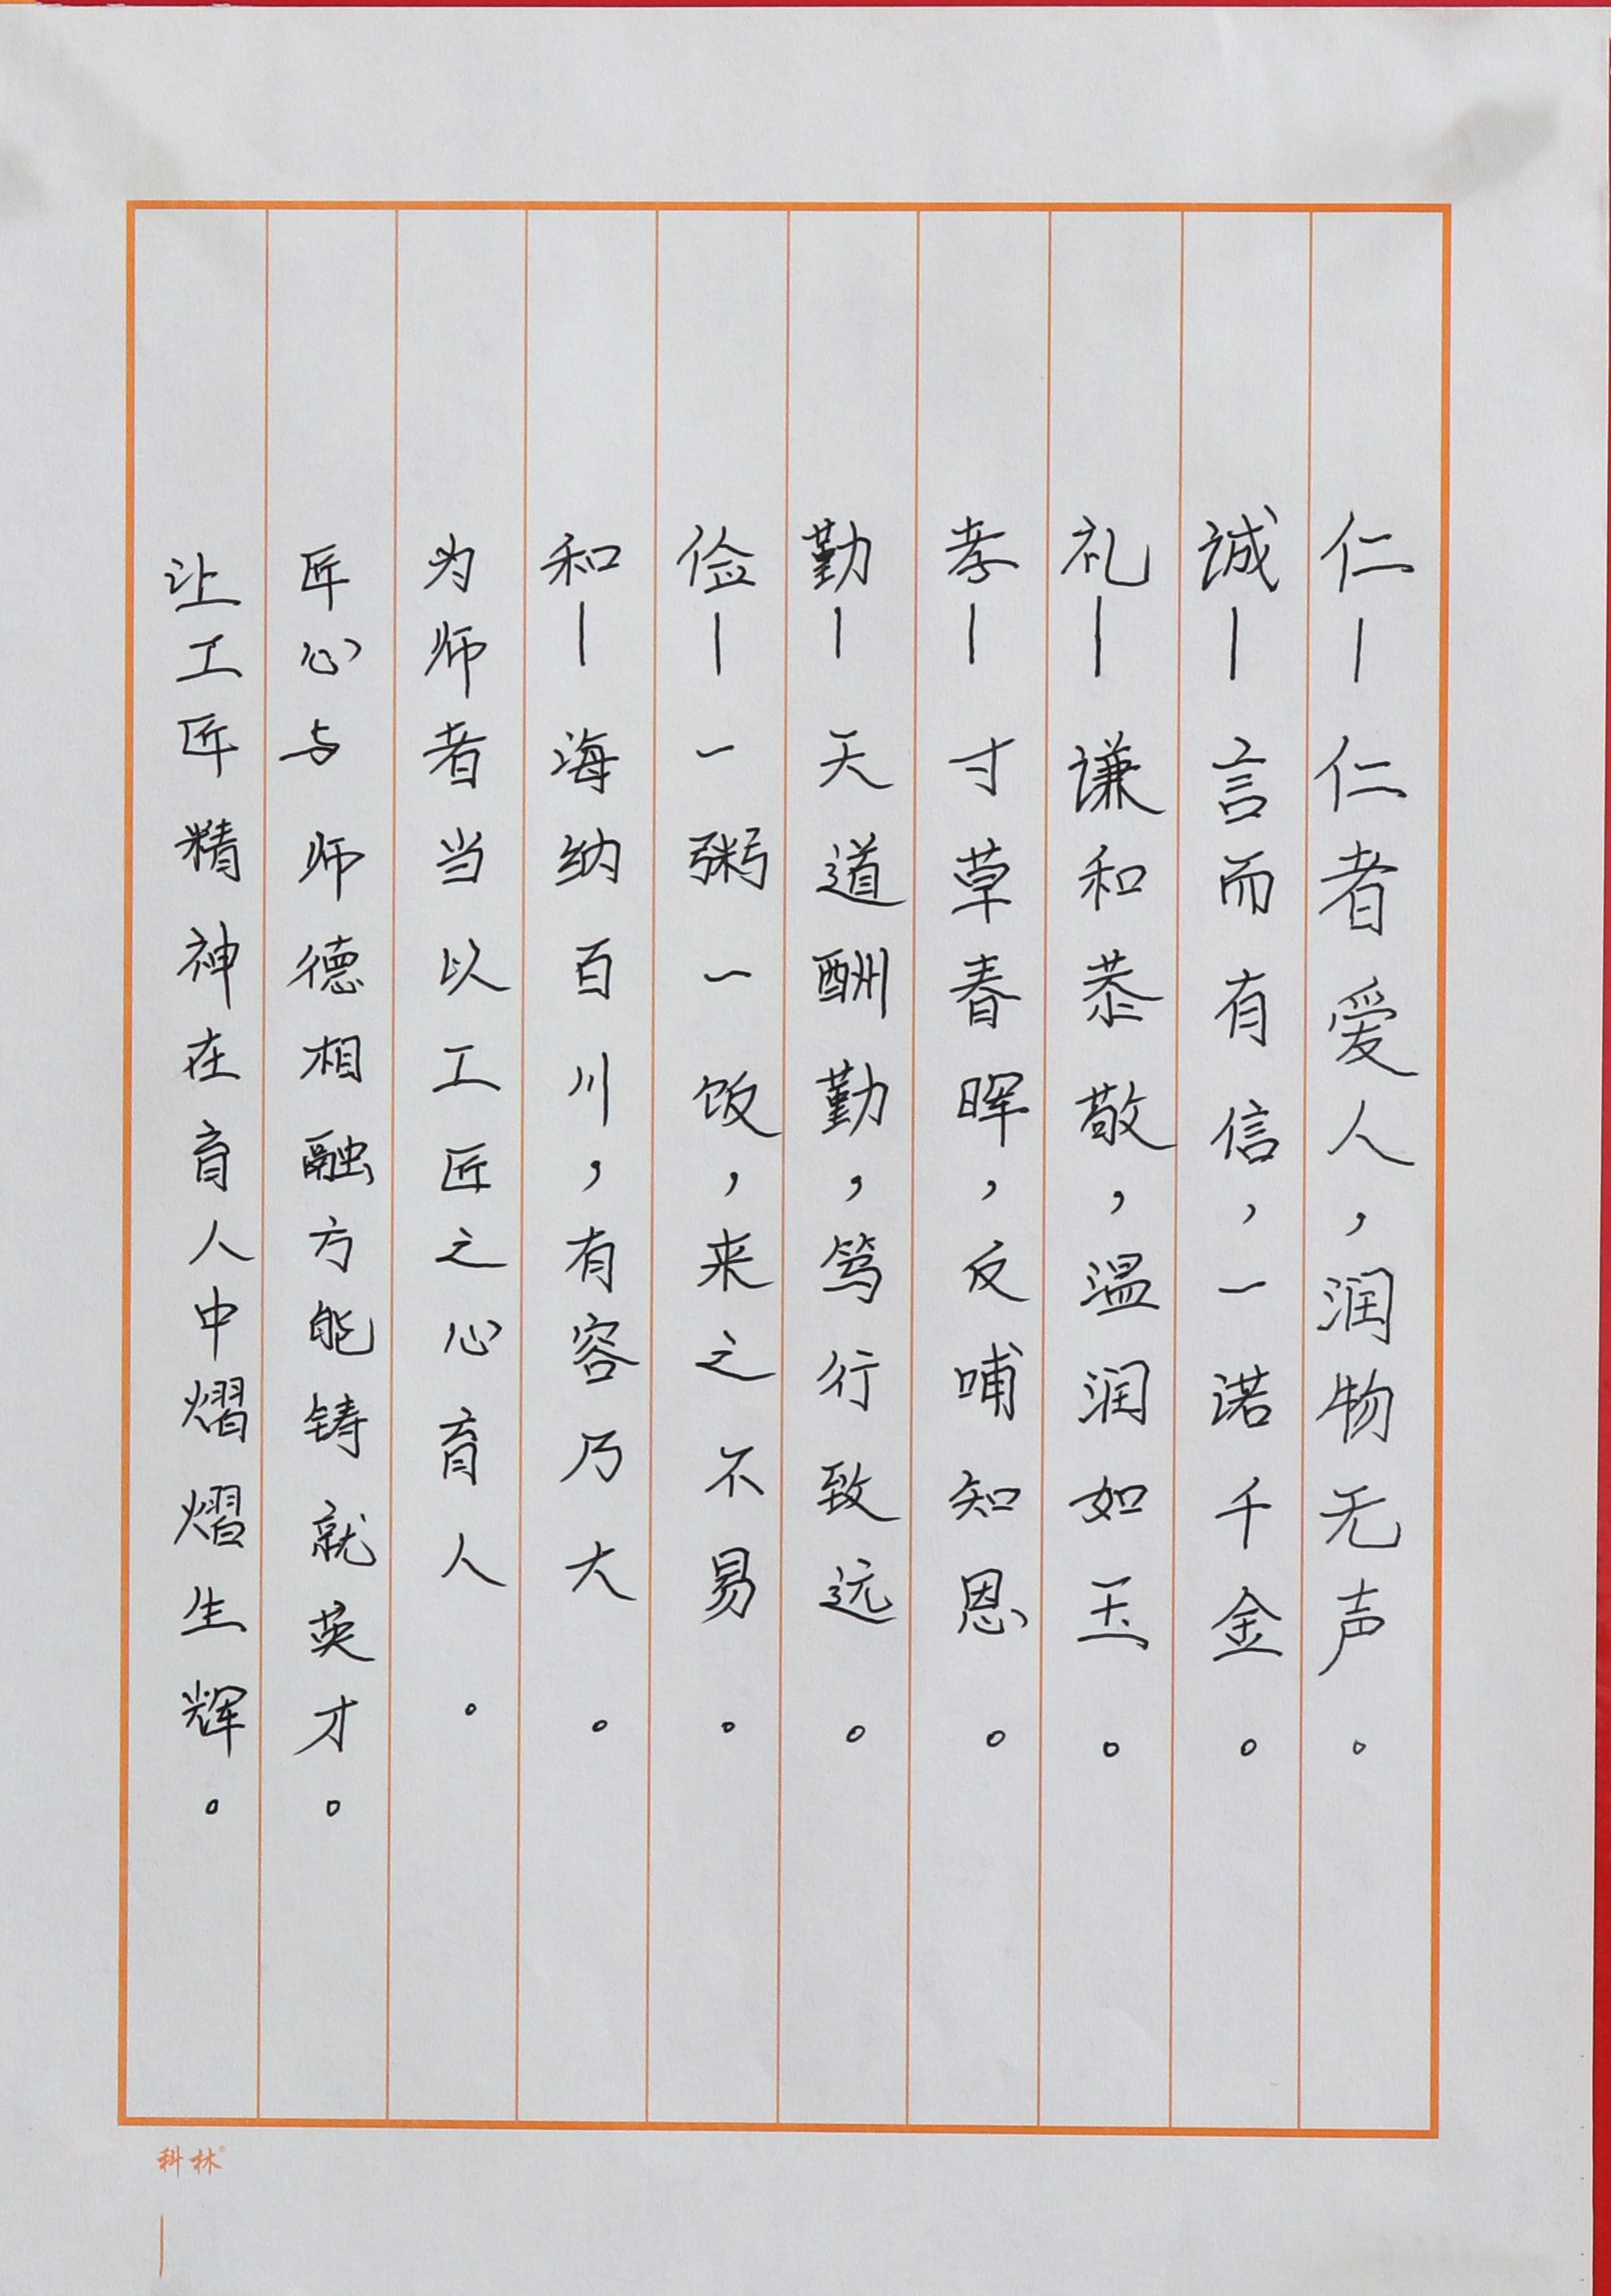 仁—仁者爱人，润物无声。
诚—言而有信，一诺千金。
礼—谦和恭敬，温润如玉。
孝—寸草春晖，反哺知恩。
勤—天道酬勤，笃行致远。
俭—一粥一饭，来之不易。
和—海纳百川，有容乃大。
为师者当以工匠之心育人。
匠心与师德相融方能铸就英才。
让工匠精神在育人中熠熠生辉。
科林®